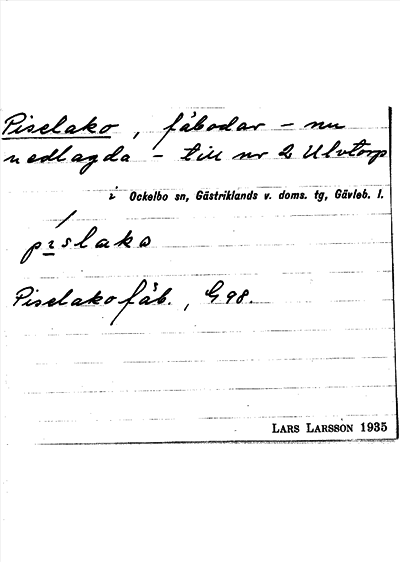 Piselako, fäbodar - nu
nedlagda - till nr 2 Ulvtorp
i Ockelbo sn, Gästriklands v. doms. tg, Gävleb. l.
pislako
Piselako fäb., G98.
LARS LARSSON 1935